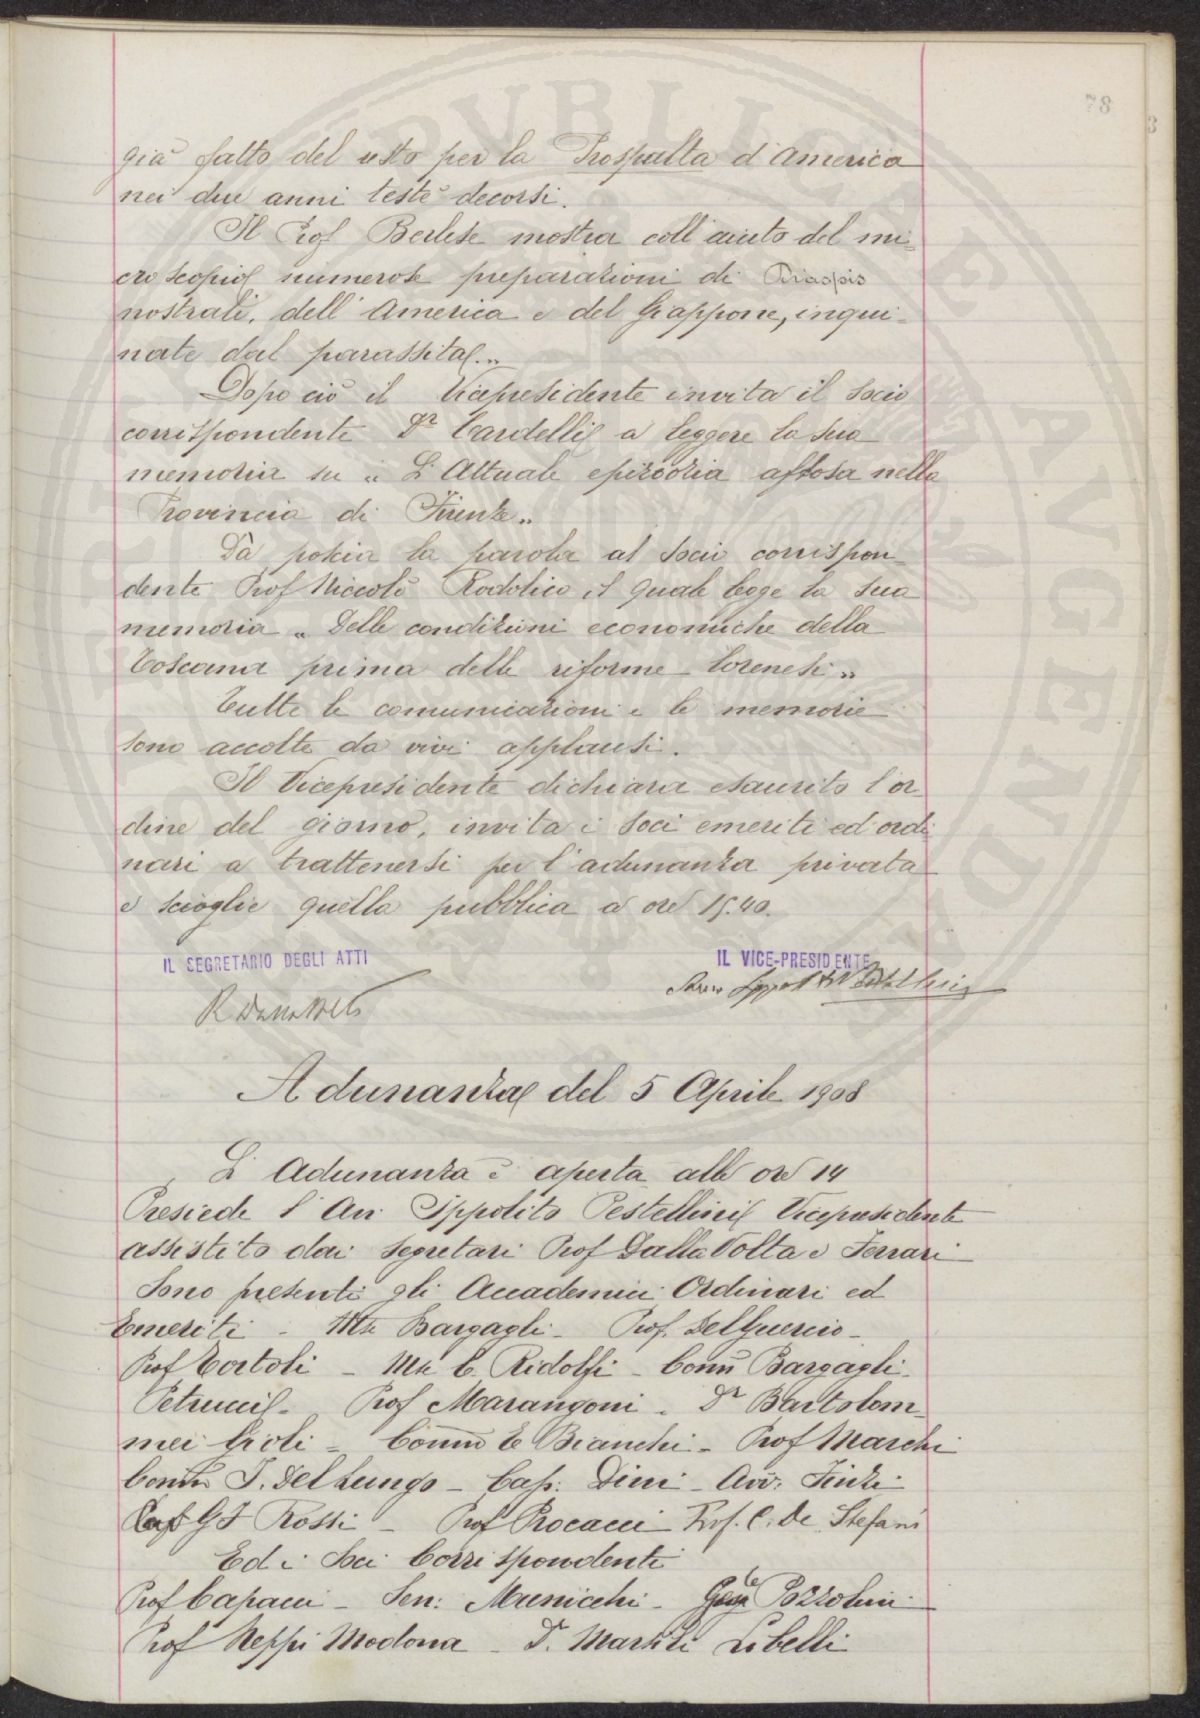 78
già fatto del resto per la Prospalta d'America
nei due anni testè decorsi.
Il Prof Berlese mostra coll'aiuto del mi-
croscopio numerose preparazioni di Diaspis
nostrali, dell'America e del Giappone, inqui-
nate dal parassita „
Dopo ciò il Vicepresidente invita il Socio
corrispondente Dr Cardelli a leggere la sua
memoria su „ L'Attuale epizoozia aftosa nella
Provincia di Firenze „
Dà poscia la parola al Socio corrispon-
dente Prof Niccolò Rodolico il quale legge la sua
memoria „ Delle condizioni economiche della
Toscana prima delle riforme lorenesi „
Tutte le comunicazioni e le memorie
sono accolte da vivi applausi.
Il Vicepresidente dichiara esaurito l'or-
dine del giorno, invita i Soci emeriti ed ordi
nari a trattenersi per l'adunanza privata
e scioglie quella pubblica a ore 15.40.
IL SEGRETARIO DEGLI ATTI
IL VICE-PRESIDENTE
Adunanza del 5 Aprile 1908
L'Adunanza è aperta alle ore 14
Presiede l'Avv Ippolito Pestellini Vicepresidente
assistito dai Segretari Prof Dalla Volta e Ferrari
Sono presenti gli Accademici Ordinari ed
Emeriti - Mse Bargagli - Prof. Del Guercio -
Prof Tortoli - Mse C. Ridolfi - Comm Bargagli-
Petrucci - Prof Marangoni - Dr Bartolom-
mei Gioli - Comm E Bianchi - Prof Marchi
Comm I. Del Lungo - Cap. Dini - Avv. Finzi
G F Rossi - Prof Procacci Prof. C. De Stefani
Ed i Soci Corrispondenti
Prof Capacci - Sen: Municchi - Pozzolini
Prof Neppi Modona - Dr. Marsili Libelli